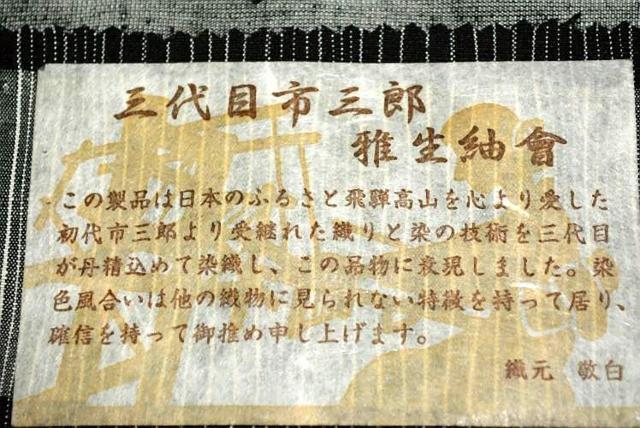 三代目市三郎
雅生紬會
この製品は日本のふるさと飛騨高山を心より愛した
初代市三郎より受継れた織りと染の技術を三代目
が丹精込めて染織し、この品物に表現しました。染
色風合いは他の織物に見られない特徴を持って居り、
確信を持って御推め申し上げます。
織元 敬白